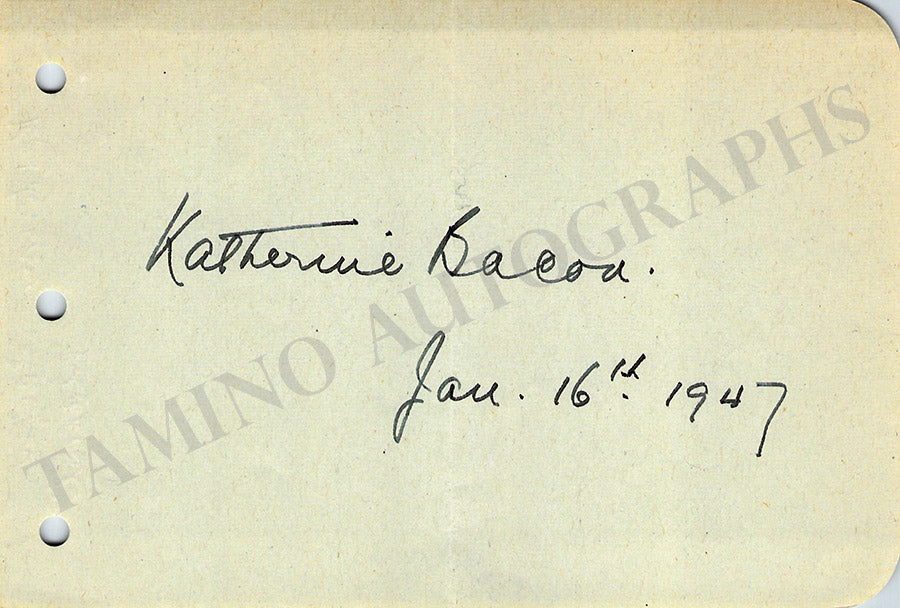 Katherine Bacon.
Jan. 16th. 1947
TAMINO AUTOGRAPHS